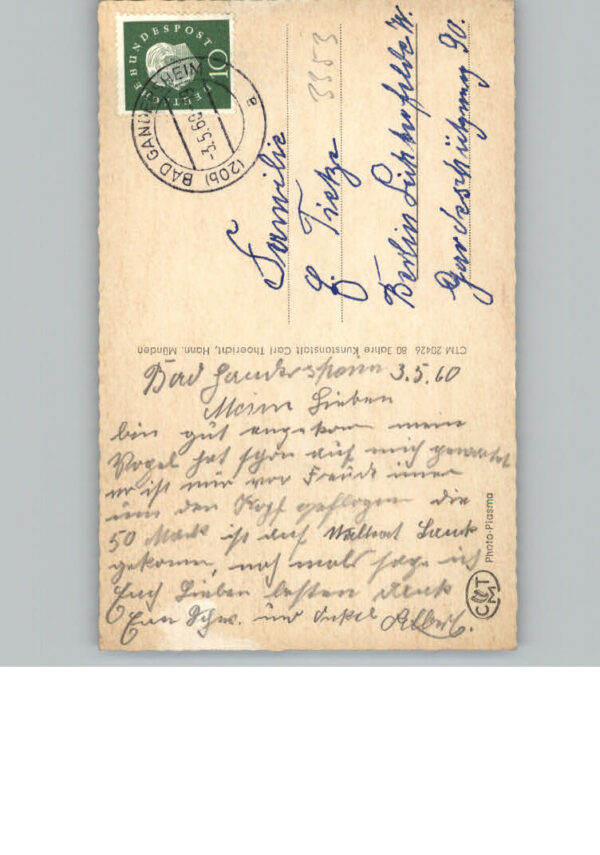 DEUTSCHE BUNDESPOST
10
(20b) BAD GANDERSHEIM
-3.5.60
a
3353
Familie
Tietze
Berlin Lichterfelde W.
Gardeschützenweg 90.
CTM 20426 80 Jahre Kunstanstalt Carl Thoericht, Hann. Münden
Bad 3.5.60
Meine Lieben
bin gut angekom mein
Vogel hat schon auf mich gewartet
er ist mir vor Freude immer
um den Kopf geflogen die
50 Mark ist auf
gekomm, noch mals sage ich
Euch Lieben besten Dank
Schw. und Onkel Albert.
Photo-Plasma
CTM